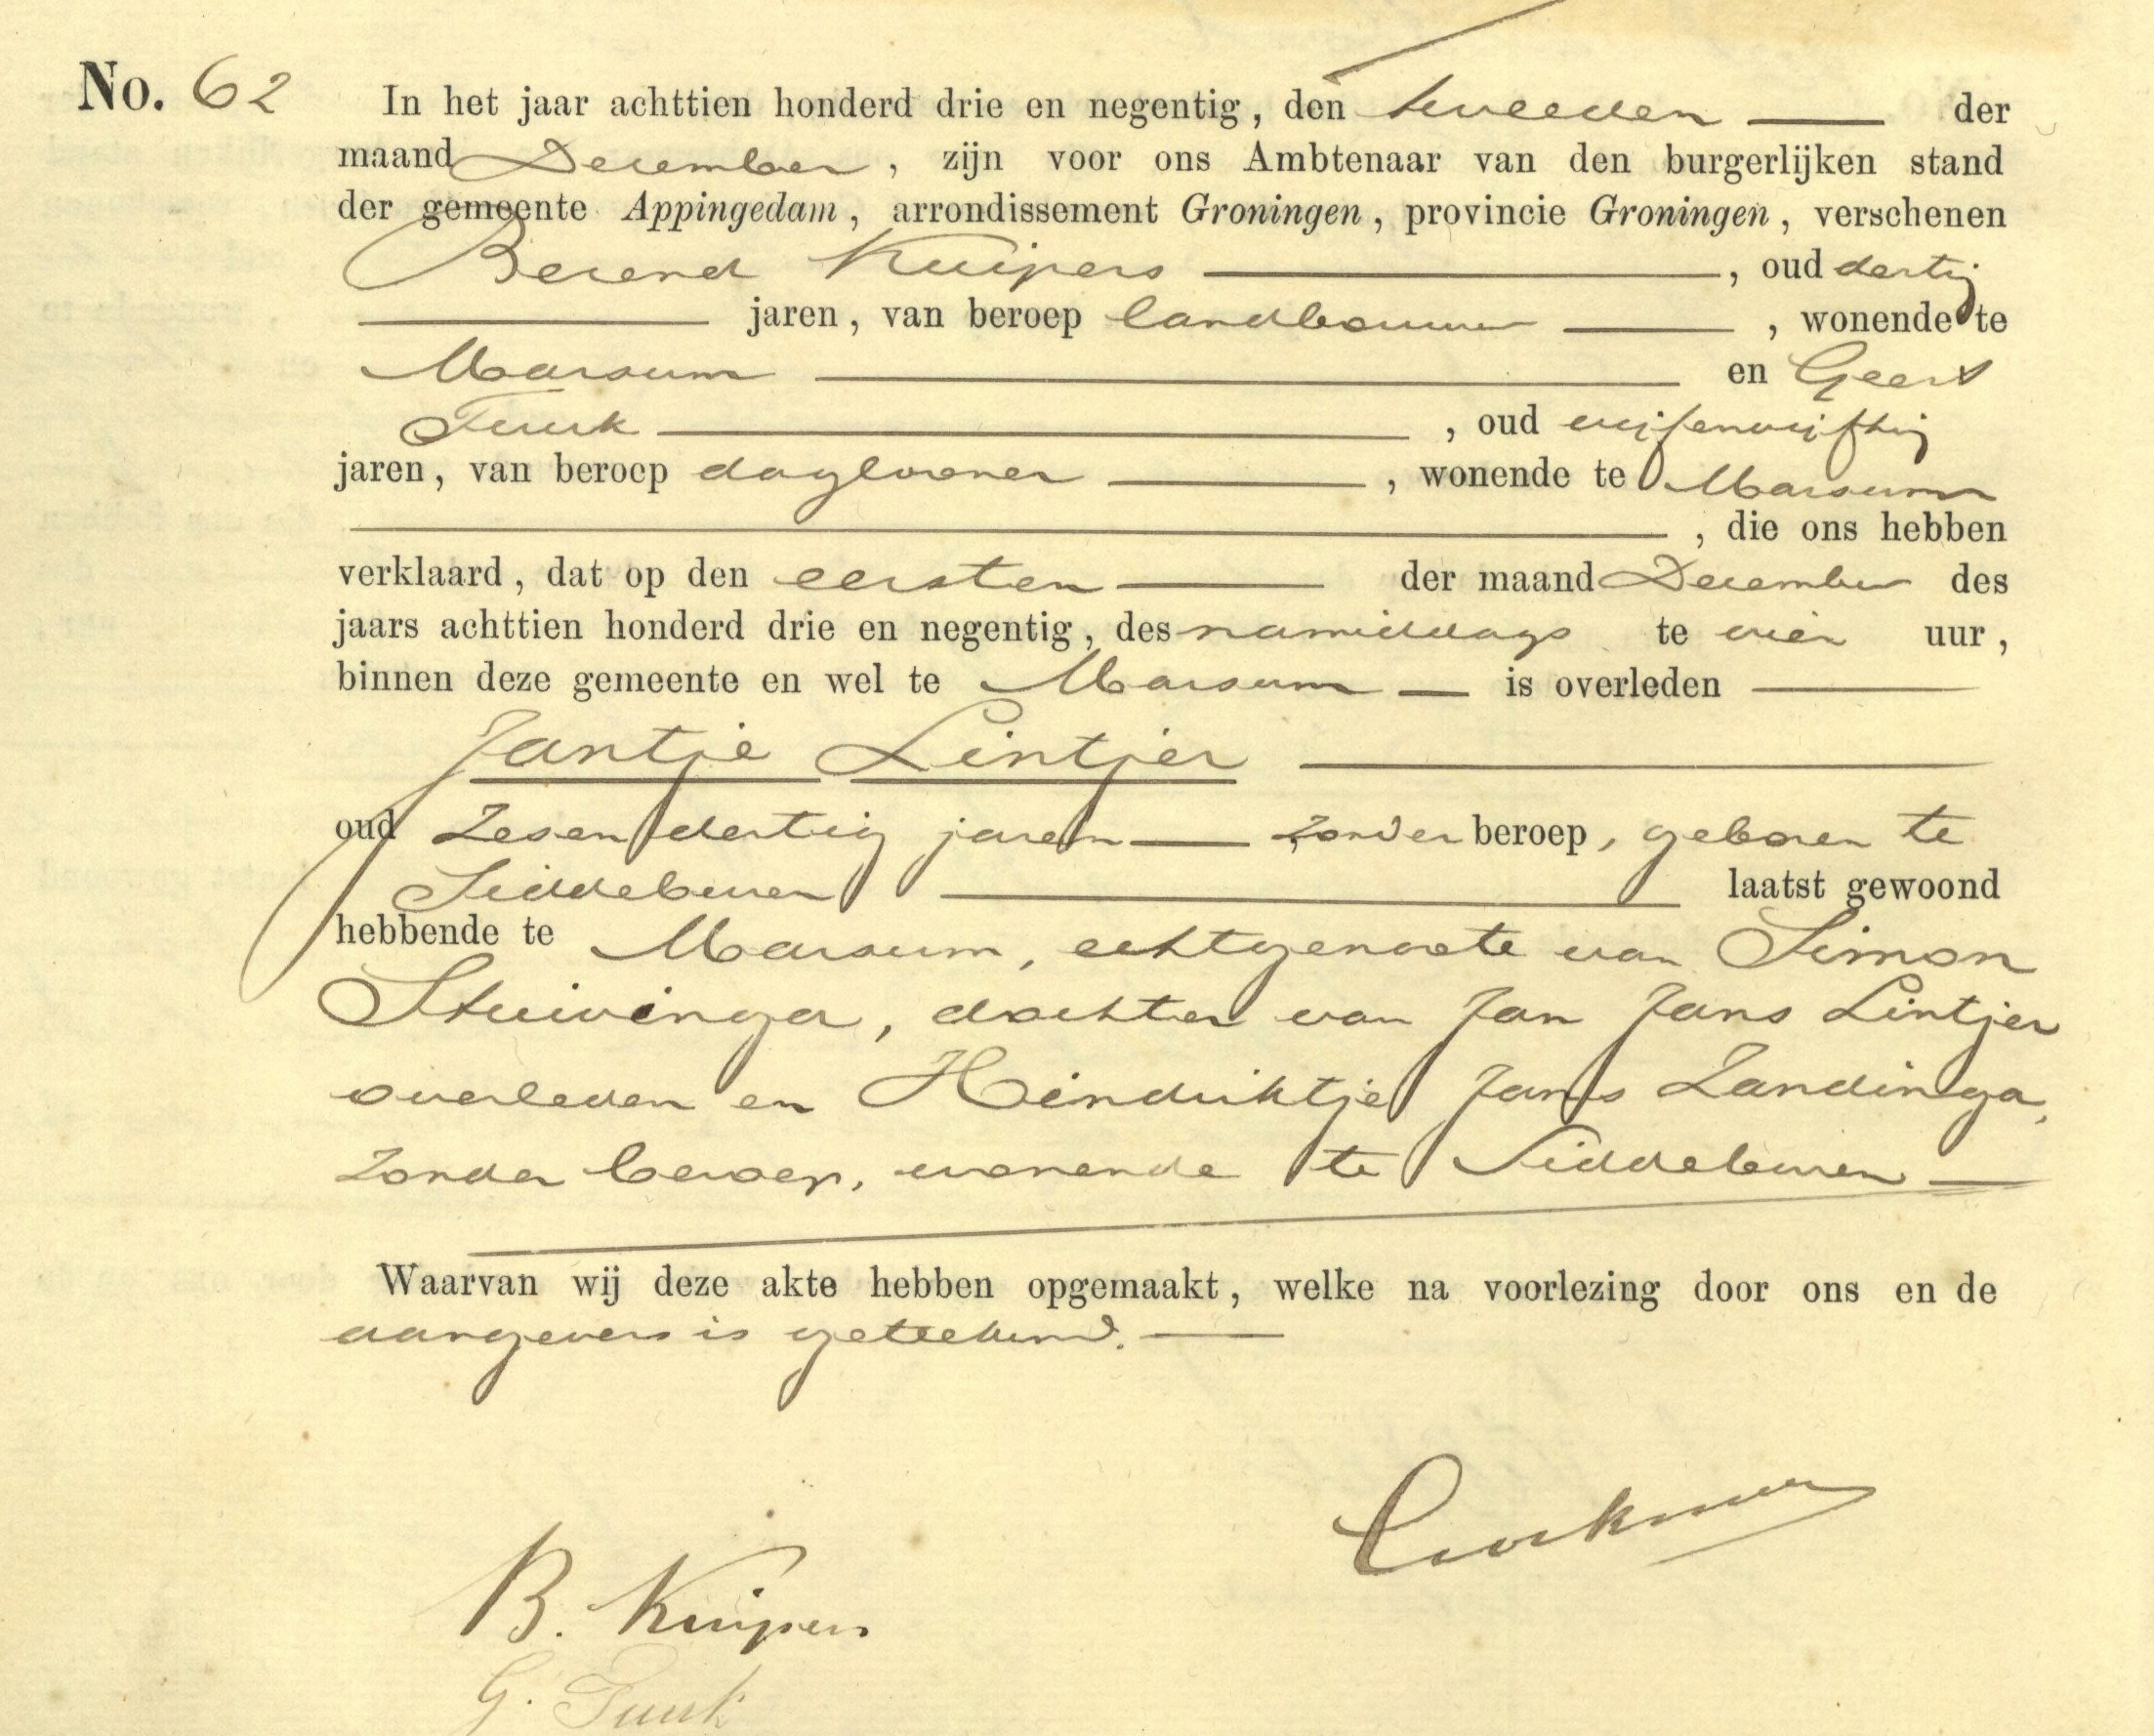 No. 62
In het jaar achttien honderd drie en negentig, den tweeden der
maand December, zijn voor ons Ambtenaar van den burgerlijken stand
der gemeente Appingedam, arrondissement Groningen, provincie Groningen, verschenen
Berend Kuipers, oud dertig
jaren, van beroep landbouwer, wonende te
Marsum en Geert
Tuuk, oud vijfenvijftig
jaren, van beroep daglooner, wonende te Marsum
, die ons hebben
verklaard, dat op den eersten der maand December des
jaars achttien honderd drie en negentig, des namiddags te vier uur,
binnen deze gemeente en wel te Marsum is overleden
Jantje Lintjer
oud zesendertig jaren zonder beroep, geboren te
Siddeburen laatst gewoond
hebbende te Marsum, echtgenoote van Simon
Stuivinga, dochter van Jan Jans Lintjer
overleden en Hindriktje Jans Zandinga,
zonder beroep, wonende te Siddeburen
Waarvan wij deze akte hebben opgemaakt, welke na voorlezing door ons en de
aangevers is geteekend.
B. Kuipers
G. Tuuk